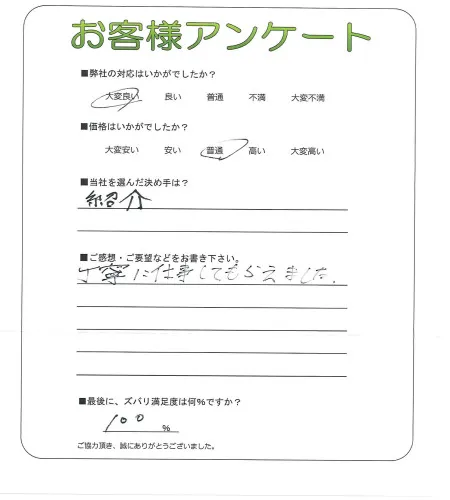 お客様アンケート
■弊社の対応はいかがでしたか？
大変良い 良い 普通 不満 大変不満
■価格はいかがでしたか？
大変安い 安い 普通 高い 大変高い
■当社を選んだ決め手は？
紹介
■ご感想・ご要望などをお書き下さい。
丁寧に仕事してもらえました。
■最後に、ズバリ満足度は何％ですか？
100 ％
ご協力頂き、誠にありがとうございました。